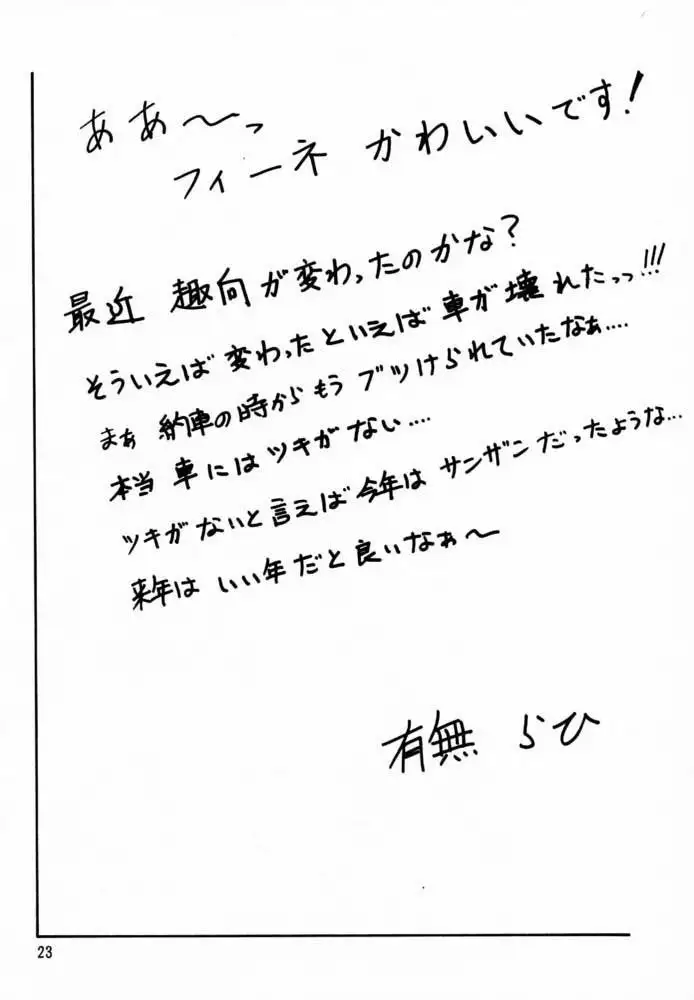 ああ〜っ
フィーネ かわいいです!
最近 趣向が変わったのかな?
そういえば 変わったといえば 車が壊れたっっ!!!
まぁ 納車の時からもう ブツけられていたなぁ....
本当 車にはツキがない....
ツキがないと言えば今年は サンザンだったような...
来年は いい年だと良いなぁ〜
有無 らひ
23